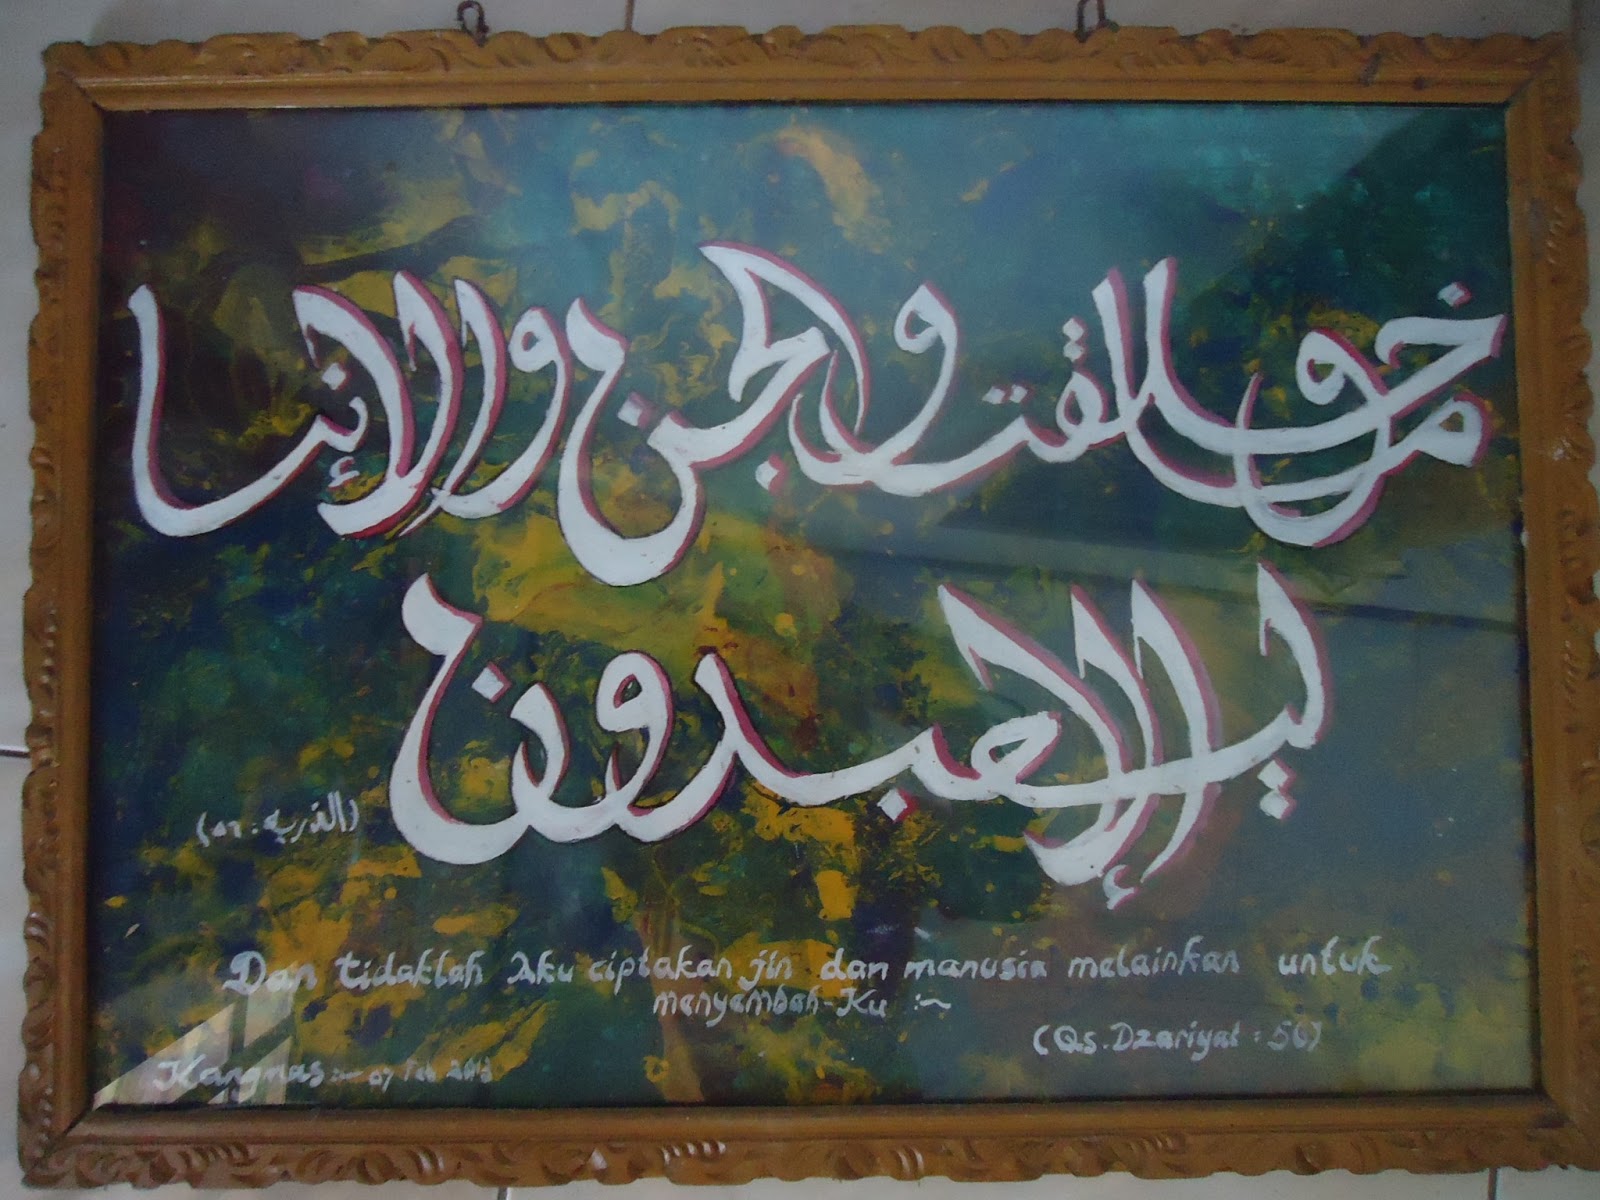 وما خلقت الجن والإنس
إلا ليعبدون
(الذريه : ٥٦)
Dan tidaklah Aku ciptakan jin dan manusia melainkan untuk
menyembah-Ku :~
(Qs. Dzariyat : 56)
Kangnas :~ 07 Feb 2013